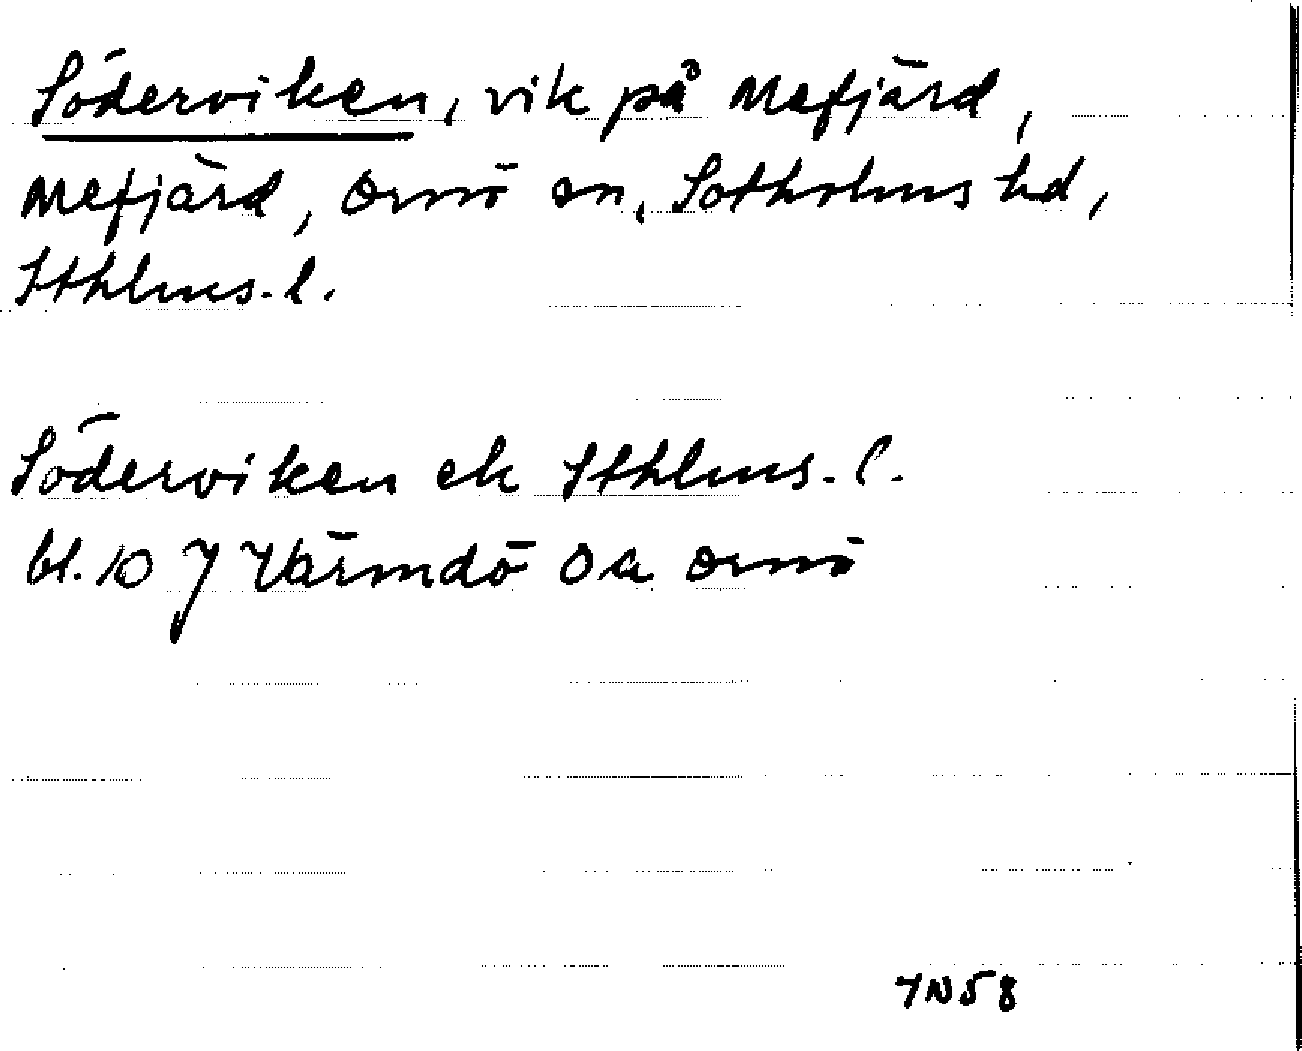 Söderviken, vik på Mefjärd,
Mefjärd, Ornö sn, Sotholms hd,
Sthlms. l.
Söderviken ek Sthlms. l.
bl. 10 J Värmdö o a Ornö
7N58